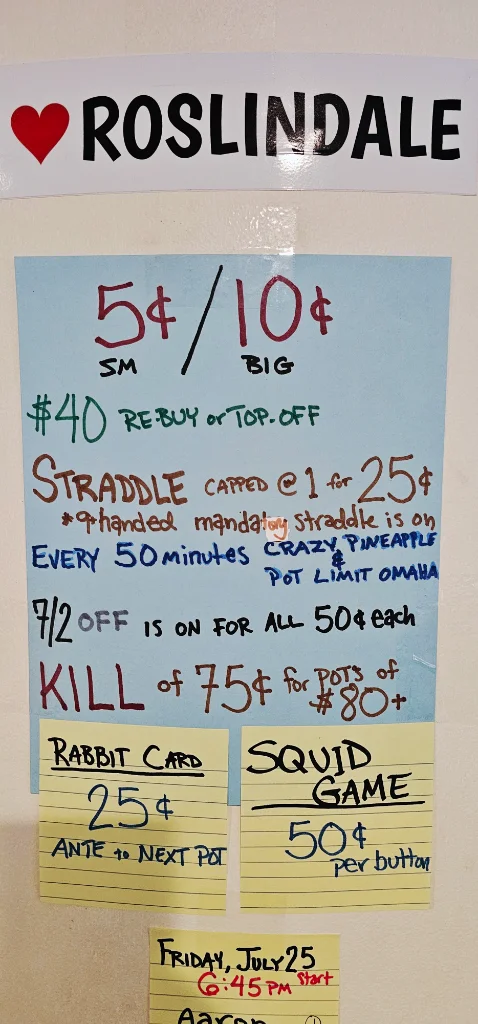 ♥ ROSLINDALE
5¢ / 10¢
SM BIG
$40 RE-BUY or TOP-OFF
STRADDLE CAPPED @ 1 for 25¢
*9handed mandatory straddle is on
EVERY 50 minutes CRAZY PINEAPPLE
&
POT LIMIT OMAHA
7/2 OFF IS ON FOR ALL 50¢ each
KILL of 75¢ for POTS of
$80+
RABBIT CARD
25¢
ANTE to NEXT POT
SQUID
GAME
50¢
per button
FRIDAY, JULY 25
6:45 PM start
Aaron